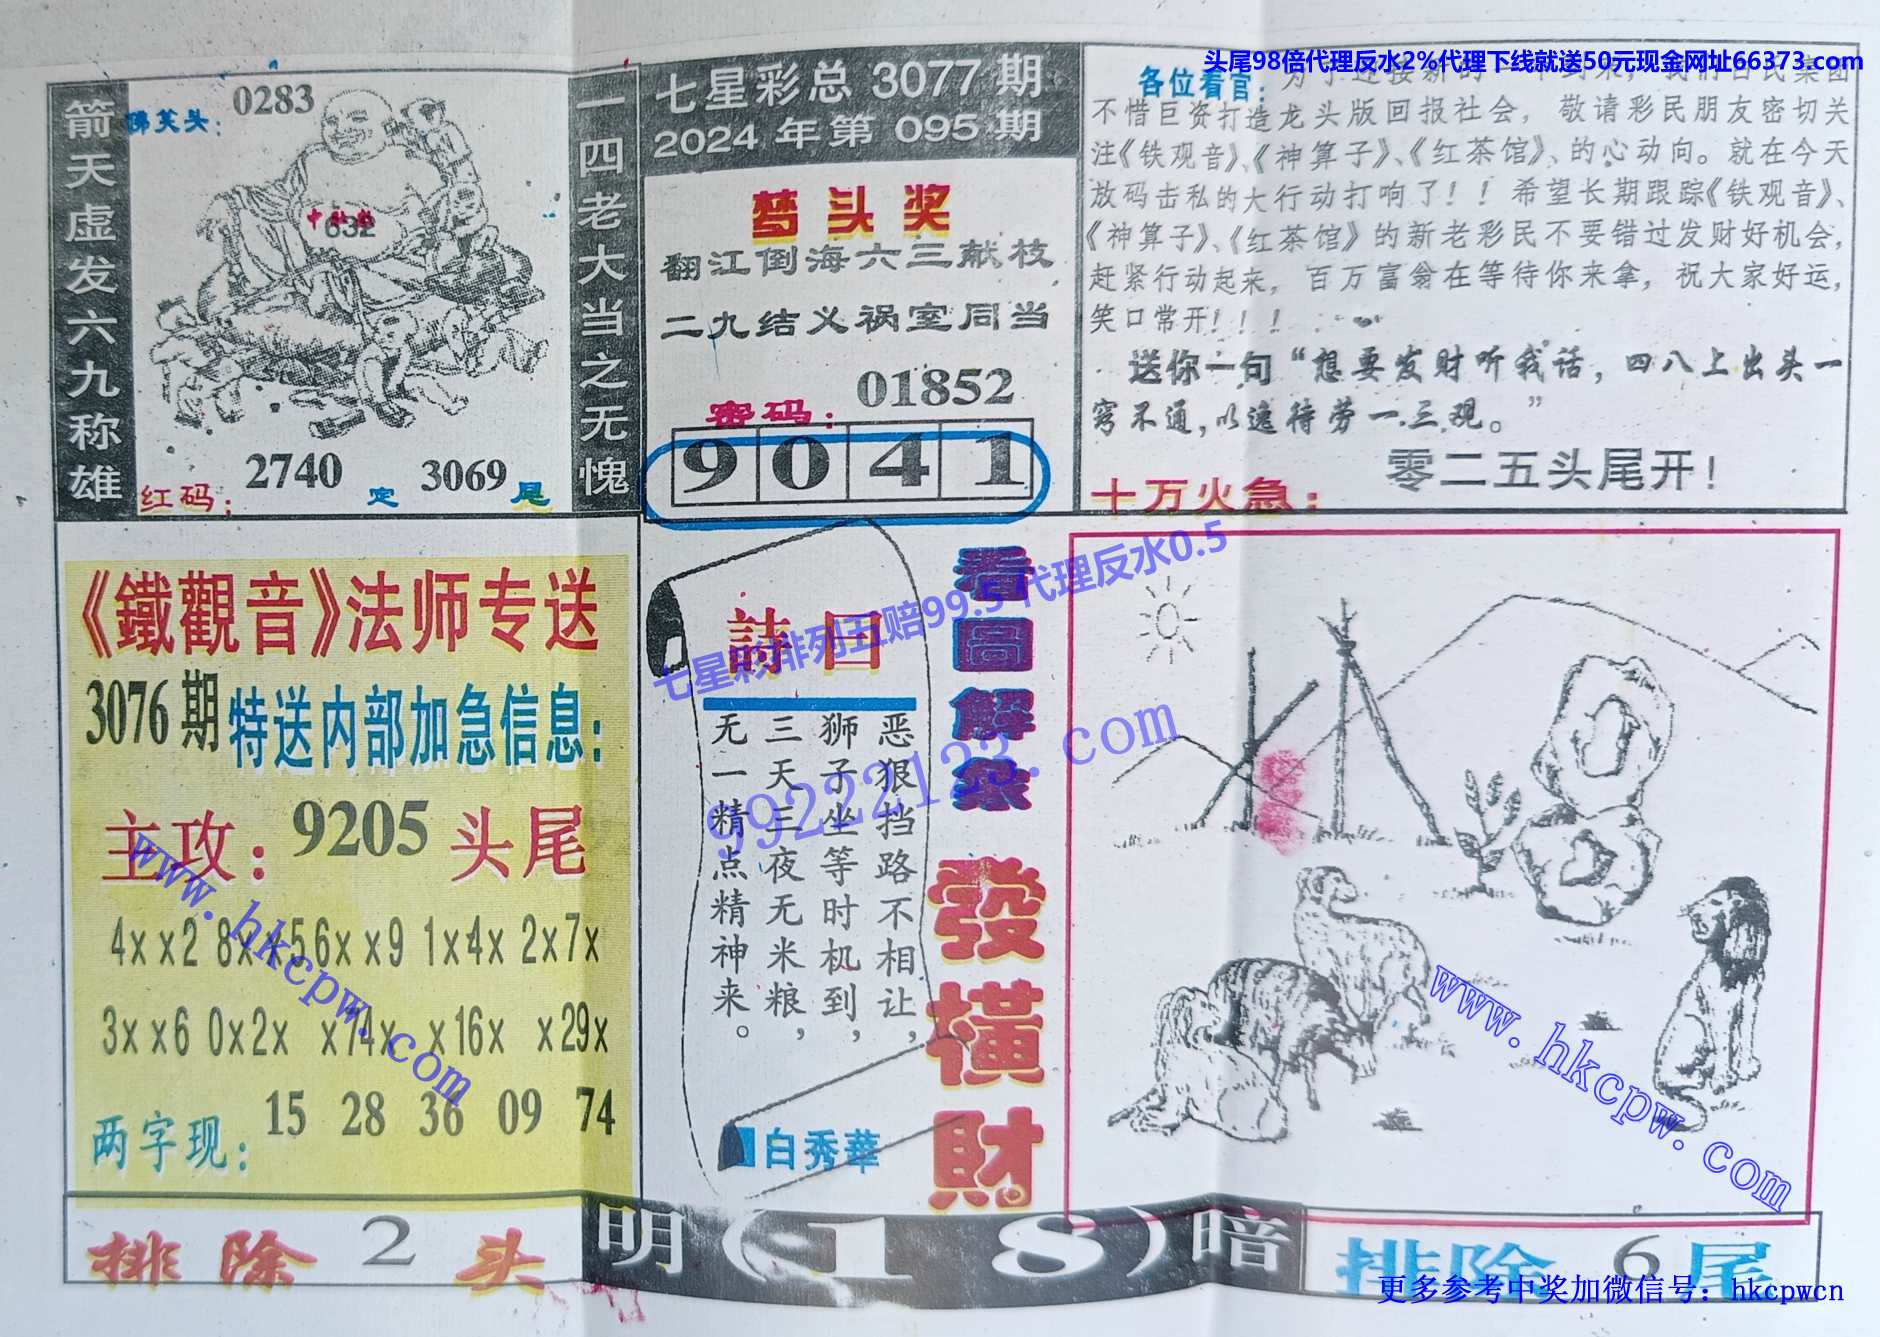 头尾98倍代理反水2%代理下线就送50元现金网址66373.com
箭天虚发六九称雄
佛笑头：
0283
中肚数
632
红码：
2740
定
3069
尾
一四老大当之无愧
七星彩总 3077 期
2024 年第 095 期
梦头奖
翻江倒海六三献枝
二九结义祸室同当
01852
密码：
9 0 4 1
各位看官：
不惜巨资打造龙头版回报社会，敬请彩民朋友密切关
注《铁观音》、《神算子》、《红茶馆》、的心动向。就在今天
放码击私的大行动打响了！！希望长期跟踪《铁观音》、
《神算子》、《红茶馆》的新老彩民不要错过发财好机会，
赶紧行动起来，百万富翁在等待你来拿，祝大家好运，
笑口常开！！！
送你一句“想要发财听我话，四八上出头一
窍不通，以逸待劳一.三.观。”
十万火急：
零二五头尾开！
《鐵觀音》法师专送
3076 期 特送内部加急信息：
主攻：9205 头尾
4××2 8××5 6××9 1×4× 2×7×
3××6 0×2× ×74× ×16× ×29×
两字现：15 28 36 09 74
詩曰
恶狠挡路不相让，
狮子坐等时机到，
三天三夜无米粮，
无一精点精神来。
白秀華
看圖解象
發橫財
七星彩排列五赔99.5 代理反水0.5
99222123.com
www.hkcpw.com
www.hkcpw.com
排除 2 头
明(18)暗
排除 6 尾
更多参考中奖加微信号：hkcpwcn